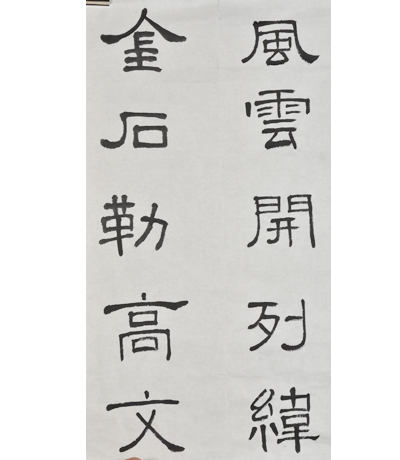 風雲開列緯
金石勒高文